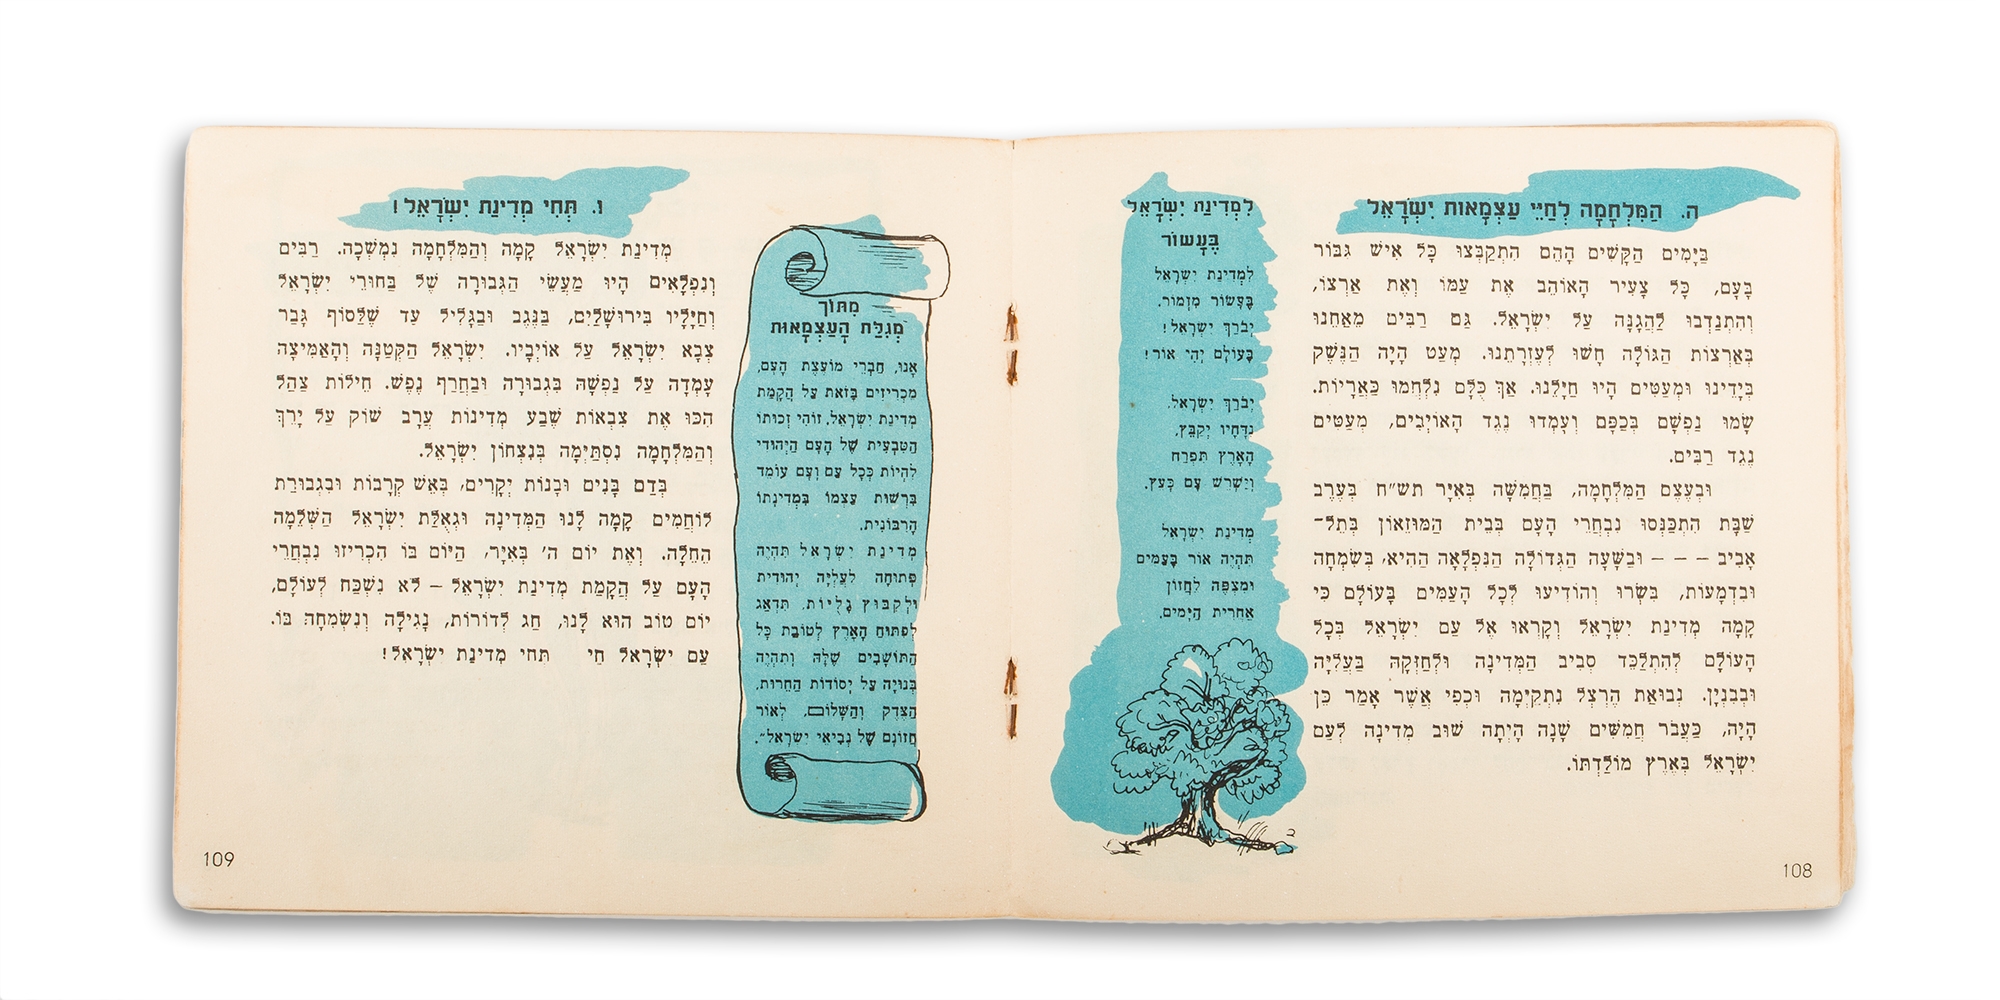 ה. הַמִּלְחָמָה לְחַיֵּי עַצְמָאוּת יִשְׂרָאֵל
בַּיָּמִים הַקָּשִׁים הָהֵם הִתְקַבְּצוּ כָּל אִישׁ גִּבּוֹר
בָּעָם, כָּל צָעִיר הָאוֹהֵב אֶת עַמּוֹ וְאֶת אַרְצוֹ,
וְהִתְנַדְּבוּ לַהֲגָנָה עַל יִשְׂרָאֵל. גַּם רַבִּים מֵאַחֵנוּ
בְּאַרְצוֹת הַגּוֹלָה חָשׁוּ לְעֶזְרָתֵנוּ. מְעַט הָיָה הַנֶּשֶׁק
בְּיָדֵינוּ וּמְעַטִּים הָיוּ חַיָּלֵנוּ. אַךְ כֻּלָּם נִלְחֲמוּ כַּאֲרָיוֹת.
שָׂמוּ נַפְשָׁם בְּכַפָּם וְעָמְדוּ נֶגֶד הָאוֹיְבִים, מְעַטִּים
נֶגֶד רַבִּים.
וּבְעֶצֶם הַמִּלְחָמָה, בַּחֲמִשָּׁה בְּאִיָּר תש"ח בְּעֶרֶב
שַׁבָּת הִתְכַּנְּסוּ נִבְחֲרֵי הָעָם בְּבֵית הַמּוּזֵאוֹן בְּתֵל־
אָבִיב – – – וּבַשָּׁעָה הַגְּדוֹלָה הַנִּפְלָאָה הַהִיא, בְּשִׂמְחָה
וּבִדְמָעוֹת, בִּשְּׂרוּ וְהוֹדִיעוּ לְכָל הָעַמִּים בָּעוֹלָם כִּי
קָמָה מְדִינַת יִשְׂרָאֵל וְקָרְאוּ אֶל עַם יִשְׂרָאֵל בְּכָל
הָעוֹלָם לְהִתְלַכֵּד סְבִיב הַמְּדִינָה וּלְחַזְּקָהּ בַּעֲלִיָּה
וּבְבִנְיָן. נְבוּאַת הֶרְצֶל נִתְקַיְּמָה וּכְפִי אֲשֶׁר אָמַר כֵּן
הָיָה, כַּעֲבֹר חֲמִשִּׁים שָׁנָה הָיְתָה שׁוּב מְדִינָה לְעַם
יִשְׂרָאֵל בְּאֶרֶץ מוֹלַדְתּוֹ.
לִמְדִינַת יִשְׂרָאֵל
בֶּעָשׂוֹר
לִמְדִינַת יִשְׂרָאֵל
בֶּעָשׂוֹר מִזְמוֹר.
יְבֹרַךְ יִשְׂרָאֵל!
בָּעוֹלָם יְהִי אוֹר!
יְבֹרַךְ יִשְׂרָאֵל.
נִדָּחָיו יְקַבֵּץ.
הָאָרֶץ תִּפְרַח
וְיַשְׁרֵשׁ עַם כָּעֵץ.
מְדִינַת יִשְׂרָאֵל
תִּהְיֶה אוֹר בָּעַמִּים
וּמִצְפֶּה לַחֲזוֹן
אַחֲרִית הַיָּמִים.
108
מִתּוֹךְ
מְגִלַּת הָעַצְמָאוּת
אָנוּ, חַבְרֵי מוֹעֶצֶת הָעָם,
מַכְרִיזִים בָּזֹאת עַל הֲקָמַת
מְדִינַת יִשְׂרָאֵל. זוֹהִי זְכוּתוֹ
הַטִּבְעִית שֶׁל הָעָם הַיְּהוּדִי
לִהְיוֹת כְּכָל עַם וְעַם עוֹמֵד
בִּרְשׁוּת עַצְמוֹ בִּמְדִינָתוֹ
הָרִבּוֹנִית.
מְדִינַת יִשְׂרָאֵל תִּהְיֶה
פְּתוּחָה לַעֲלִיָּה יְהוּדִית
וּלְקִבּוּץ גָּלֻיּוֹת, תִּדְאַג
לְפִתּוּחַ הָאָרֶץ לְטוֹבַת כָּל
הַתּוֹשָׁבִים שֶׁלָּהּ וְתִהְיֶה
בְּנוּיָה עַל יְסוֹדוֹת הַחֵרוּת,
הַצֶּדֶק וְהַשָּׁלוֹם, לְאוֹר
חֲזוֹנָם שֶׁל נְבִיאֵי יִשְׂרָאֵל".
ו. תְּחִי מְדִינַת יִשְׂרָאֵל!
מְדִינַת יִשְׂרָאֵל קָמָה וְהַמִּלְחָמָה נִמְשְׁכָה. רַבִּים
וְנִפְלָאִים הָיוּ מַעֲשֵׂי הַגְּבוּרָה שֶׁל בַּחוּרֵי יִשְׂרָאֵל
וְחַיָּלָיו בִּירוּשָׁלַיִם, בַּנֶּגֶב וּבַגָּלִיל עַד שֶׁלַּסּוֹף גָּבַר
צְבָא יִשְׂרָאֵל עַל אוֹיְבָיו. יִשְׂרָאֵל הַקְּטַנָּה וְהָאַמִּיצָה
עָמְדָה עַל נַפְשָׁהּ בִּגְבוּרָה וּבְחֵרֶף נֶפֶשׁ. חֵילוֹת צַהַל
הִכּוּ אֶת צִבְאוֹת שֶׁבַע מְדִינוֹת עֲרָב שׁוֹק עַל יָרֵךְ
וְהַמִּלְחָמָה נִסְתַּיְּמָה בְּנִצְחוֹן יִשְׂרָאֵל.
בְּדַם בָּנִים וּבָנוֹת יְקָרִים, בְּאֵשׁ קְרָבוֹת וּבִגְבוּרַת
לוֹחֲמִים קָמָה לָנוּ הַמְּדִינָה וּגְאֻלַּת יִשְׂרָאֵל הַשְּׁלֵמָה
הֵחֵלָּה. וְאֶת יוֹם ה' בְּאִיָּר, הַיּוֹם בּוֹ הִכְרִיזוּ נִבְחֲרֵי
הָעָם עַל הֲקָמַת מְדִינַת יִשְׂרָאֵל – לֹא נִשְׁכַּח לְעוֹלָם,
יוֹם טוֹב הוּא לָנוּ, חַג לְדוֹרוֹת, נָגִילָה וְנִשְׂמְחָה בּוֹ.
עַם יִשְׂרָאֵל חַי תְּחִי מְדִינַת יִשְׂרָאֵל!
109